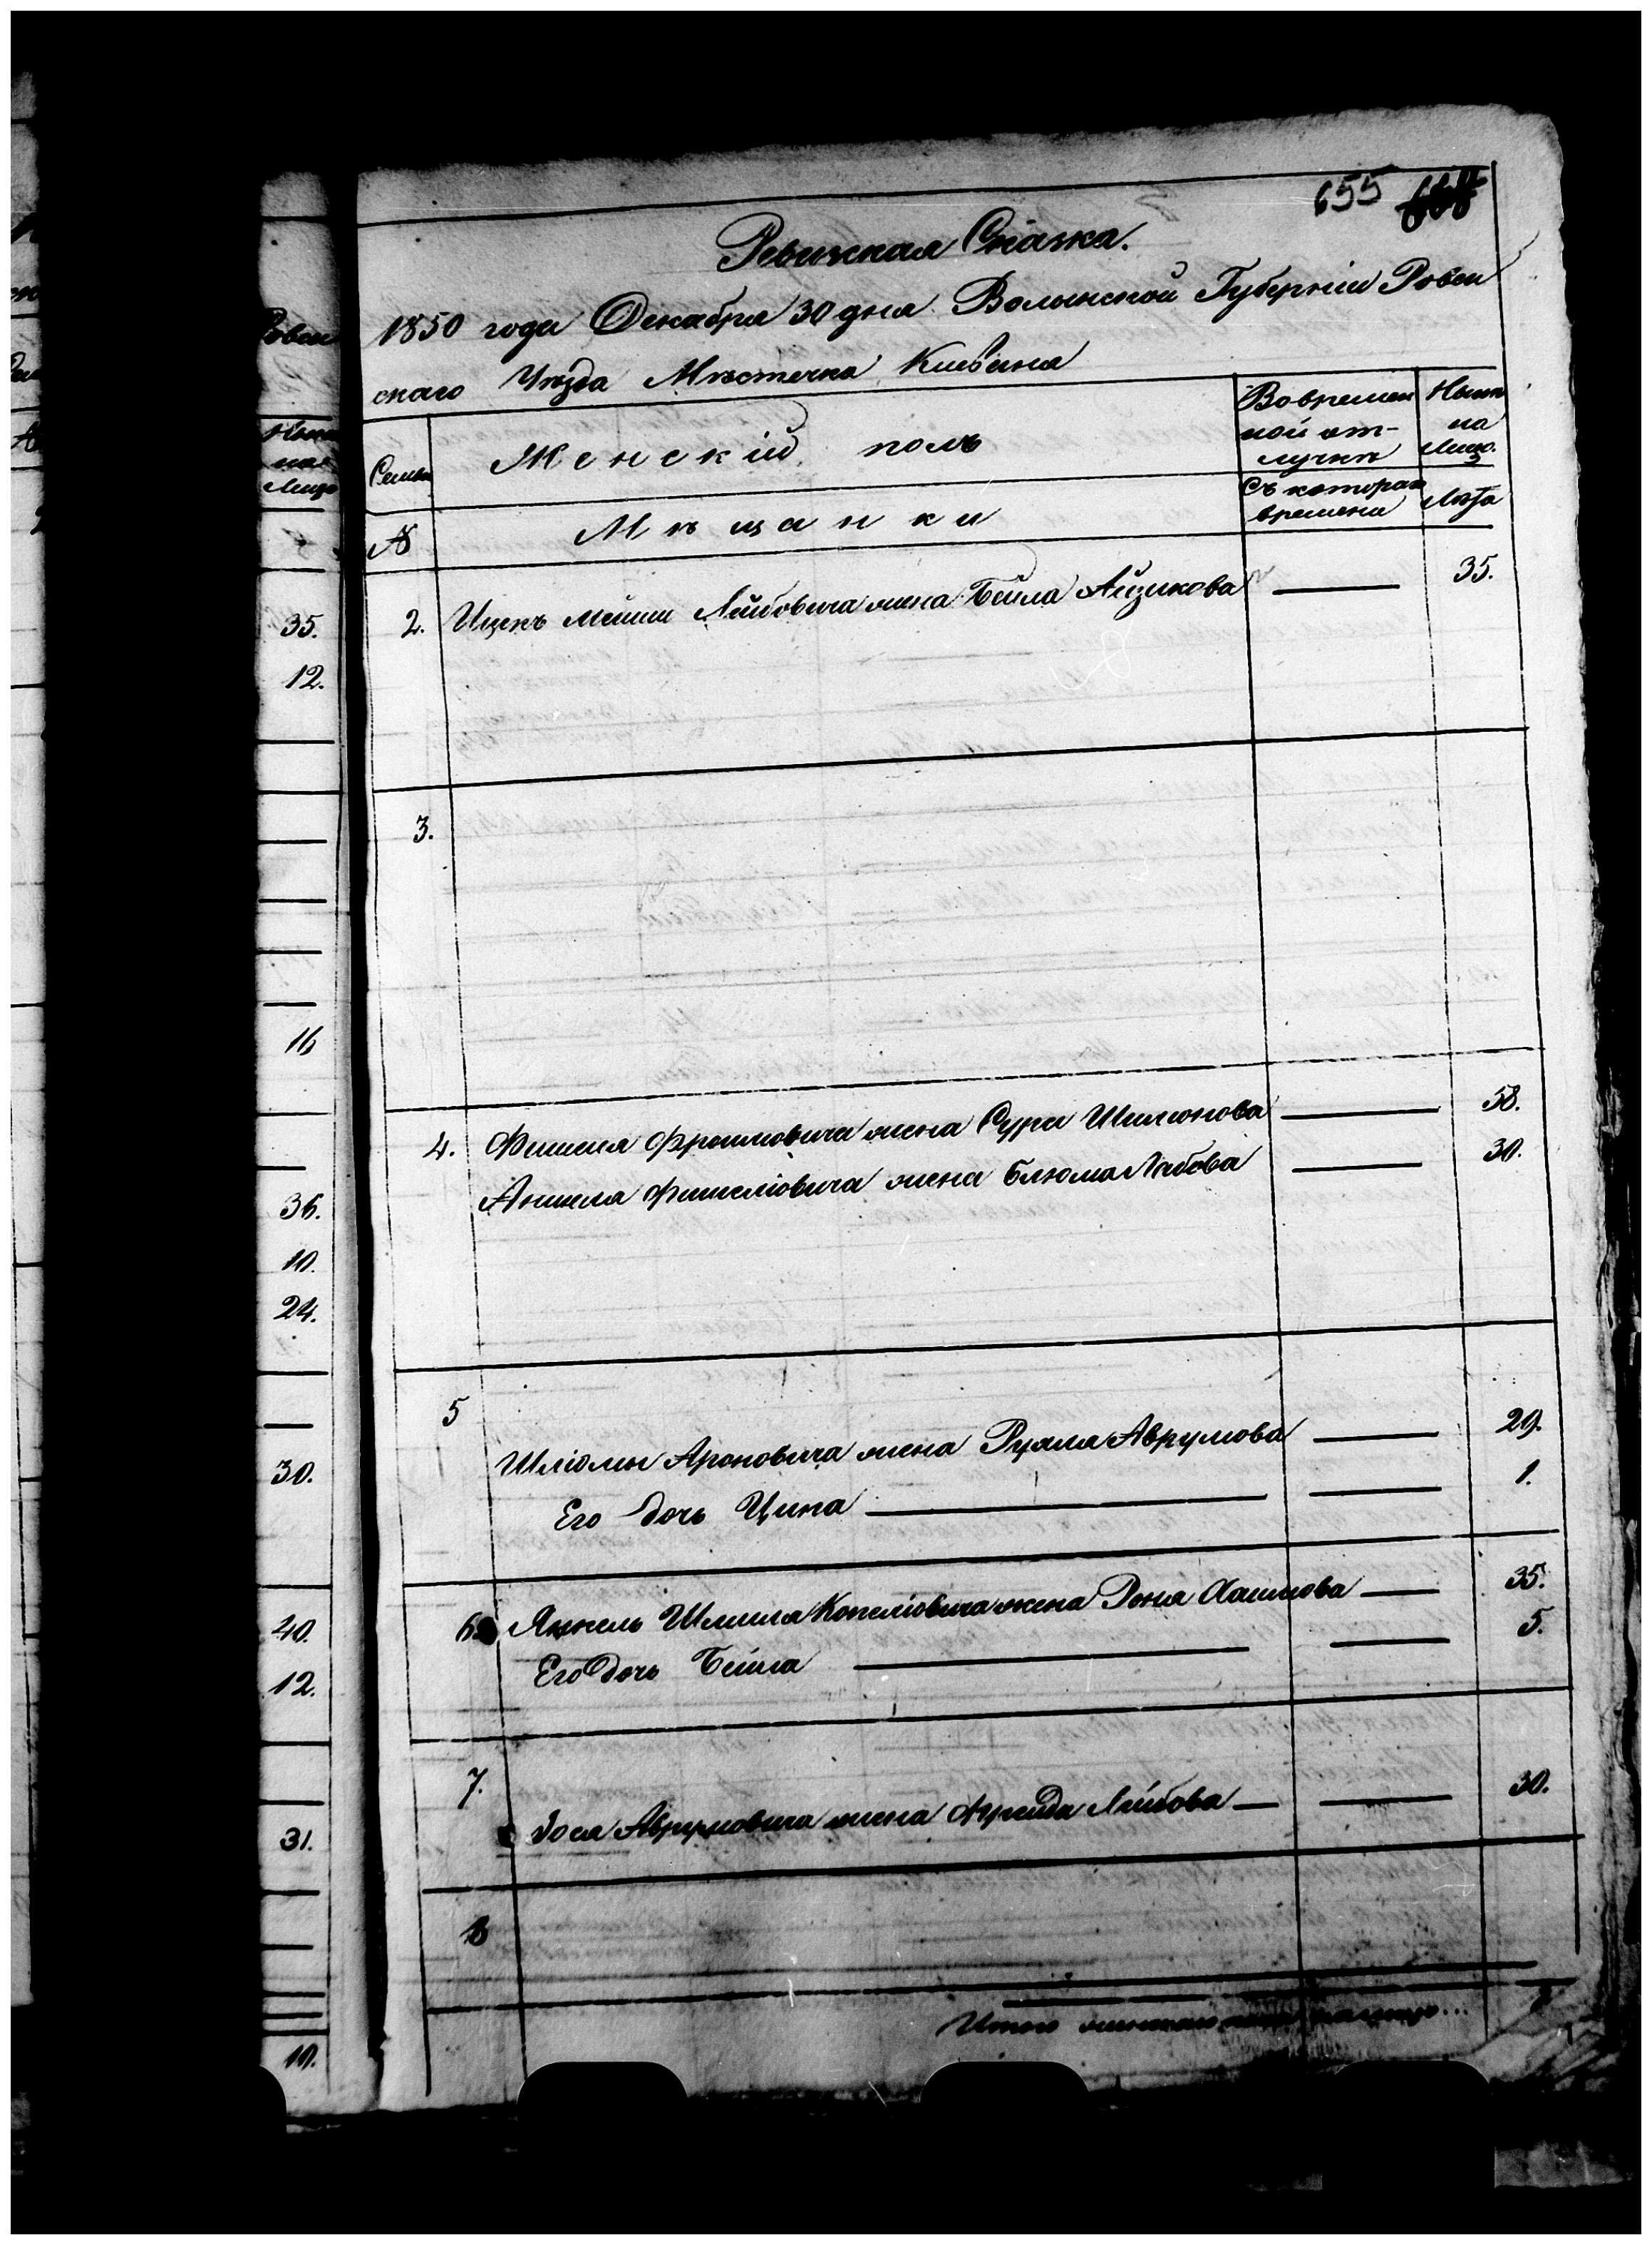 655
Ревизская Сказка.
1850 года Декабря 30 дня Волынской Губерніи Ровен
скаго Уѣзда Мѣстечка Клевана
Семьи
Женскій полъ
Во времен
ной от-
лучкѣ
Нынѣ
на
Лицо.
№
Мѣщанки
Съ котораго
времени
Лѣта
2. Ицекъ Мейши Лейбовича жена Бейла Айзикова — 35.
3.
4. Фишеля Фроимовича жена Сура Шлиомова — 58.
Аншеля Фишеліовича жена Блюма Лейбова — 30.
5
Шліомы Ароновича жена Рухля Аврумова — 29.
Его дочь Ципа — — 1.
6 Янкель Шмиля Копеліовича жена Роня Хаимова — 35.
Его дочь Бейла — — 5.
7.
Аврумовича жена Фрейда Лейбова — — 30.
8
Итого женскаго пола на лицо...
Ровен
Нынѣ
на
Лицо
35.
12.
16
36.
10.
24.
30.
40.
12.
31.
10.